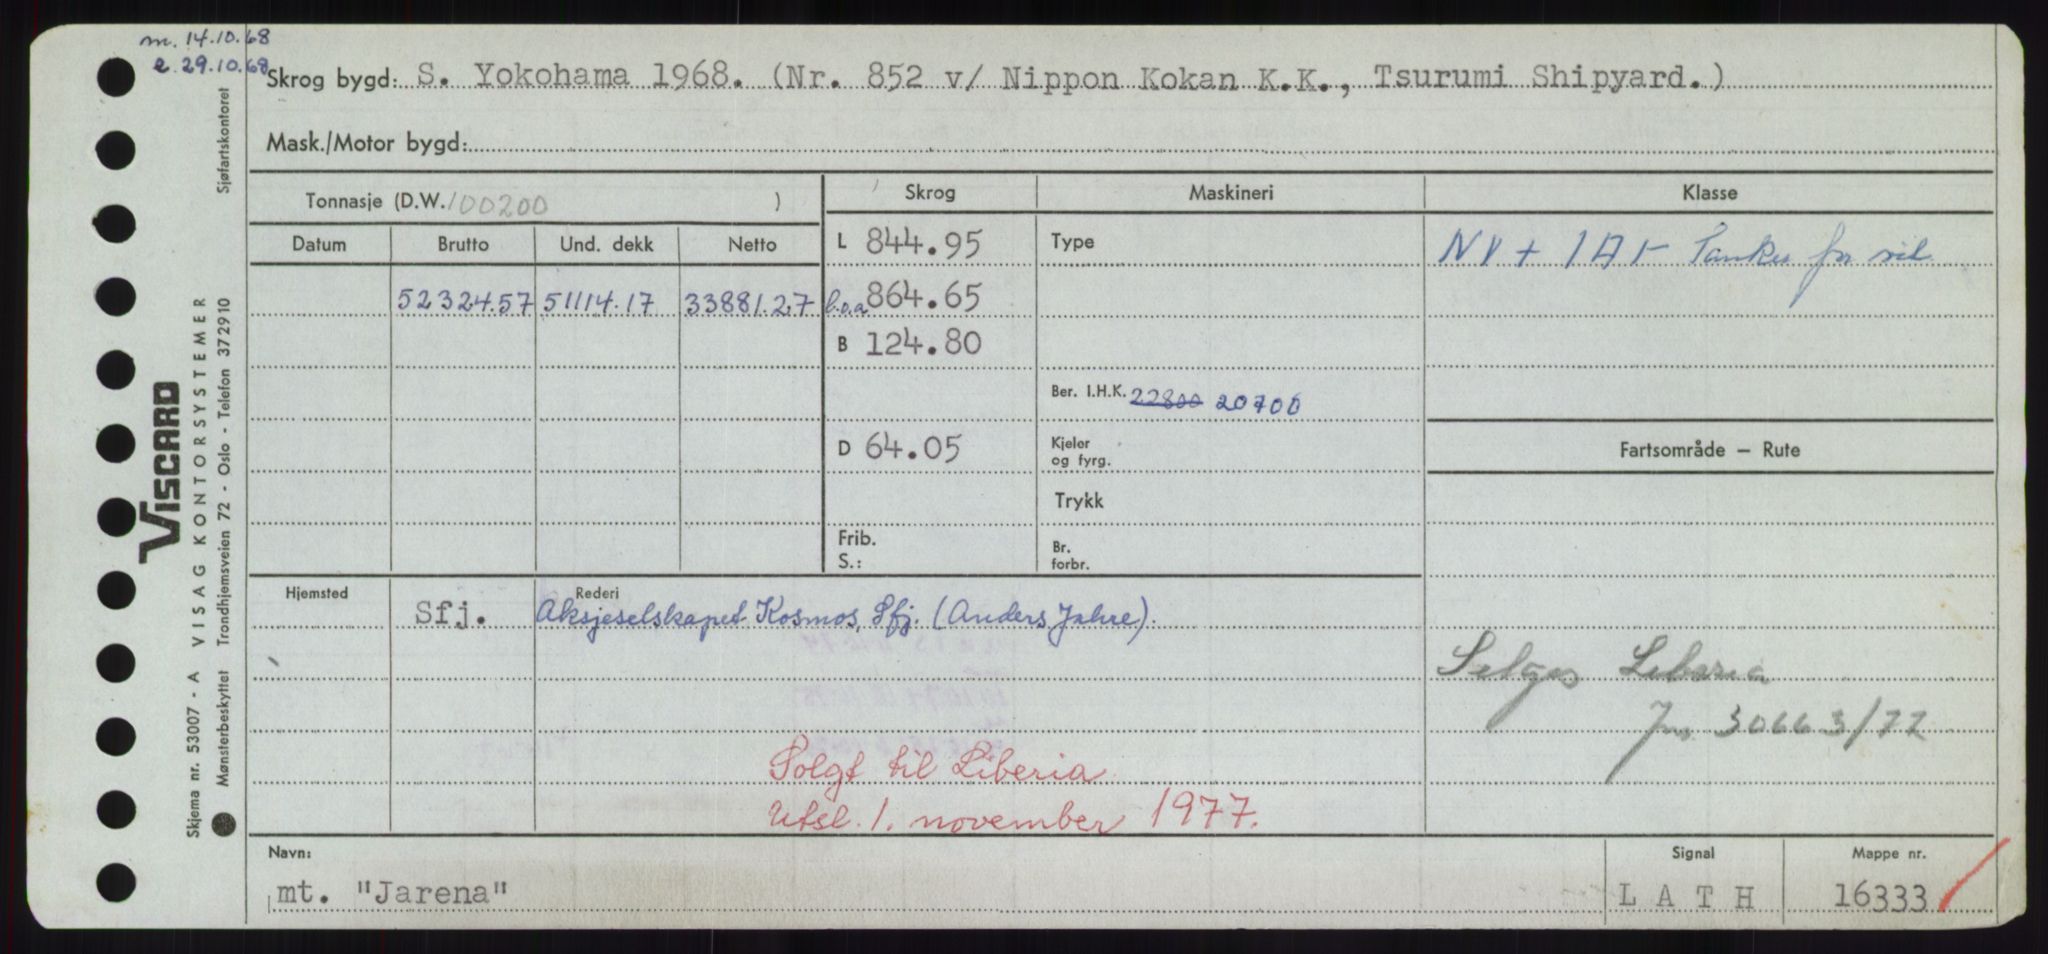 m. 14.10.68
e. 29.10.68
Skrog bygd: S. Yokohama 1968. (Nr. 852 v/ Nippon Kokan K.K., Tsurumi Shipyard.)
Mask./Motor bygd:
Tonnasje (D.W. 100200 )
Skrog Maskineri Klasse
Datum Brutto Und. dekk Netto
L 844.95 Type NV + 1A1- Tanker for
52324.57 51114.17 33881.27 l.o.a 864.65
B 124.80
Ber. I.H.K. 22800 20700
D 64.05 Kjeler og fyrg.
Fartsområde – Rute
Trykk
Frib.
S.:
Br. forbr.
Hjemsted Rederi
Sfj. Aksjeselskapet Kosmos, Sfj. (Anders Jahre).
Selges Liberia
Jnr 30663/77
Solgt til Liberia
Utsl. 1. november 1977.
Navn: Signal Mappe nr.
mt. "Jarena" L A T H 16333
VISCARD
Skjema nr. 53007 - A VISAG KONTORSYSTEMER
Mønsterbeskyttet Trondhjemsveien 72 - Oslo - Telefon 372910 Sjøfartskontoret